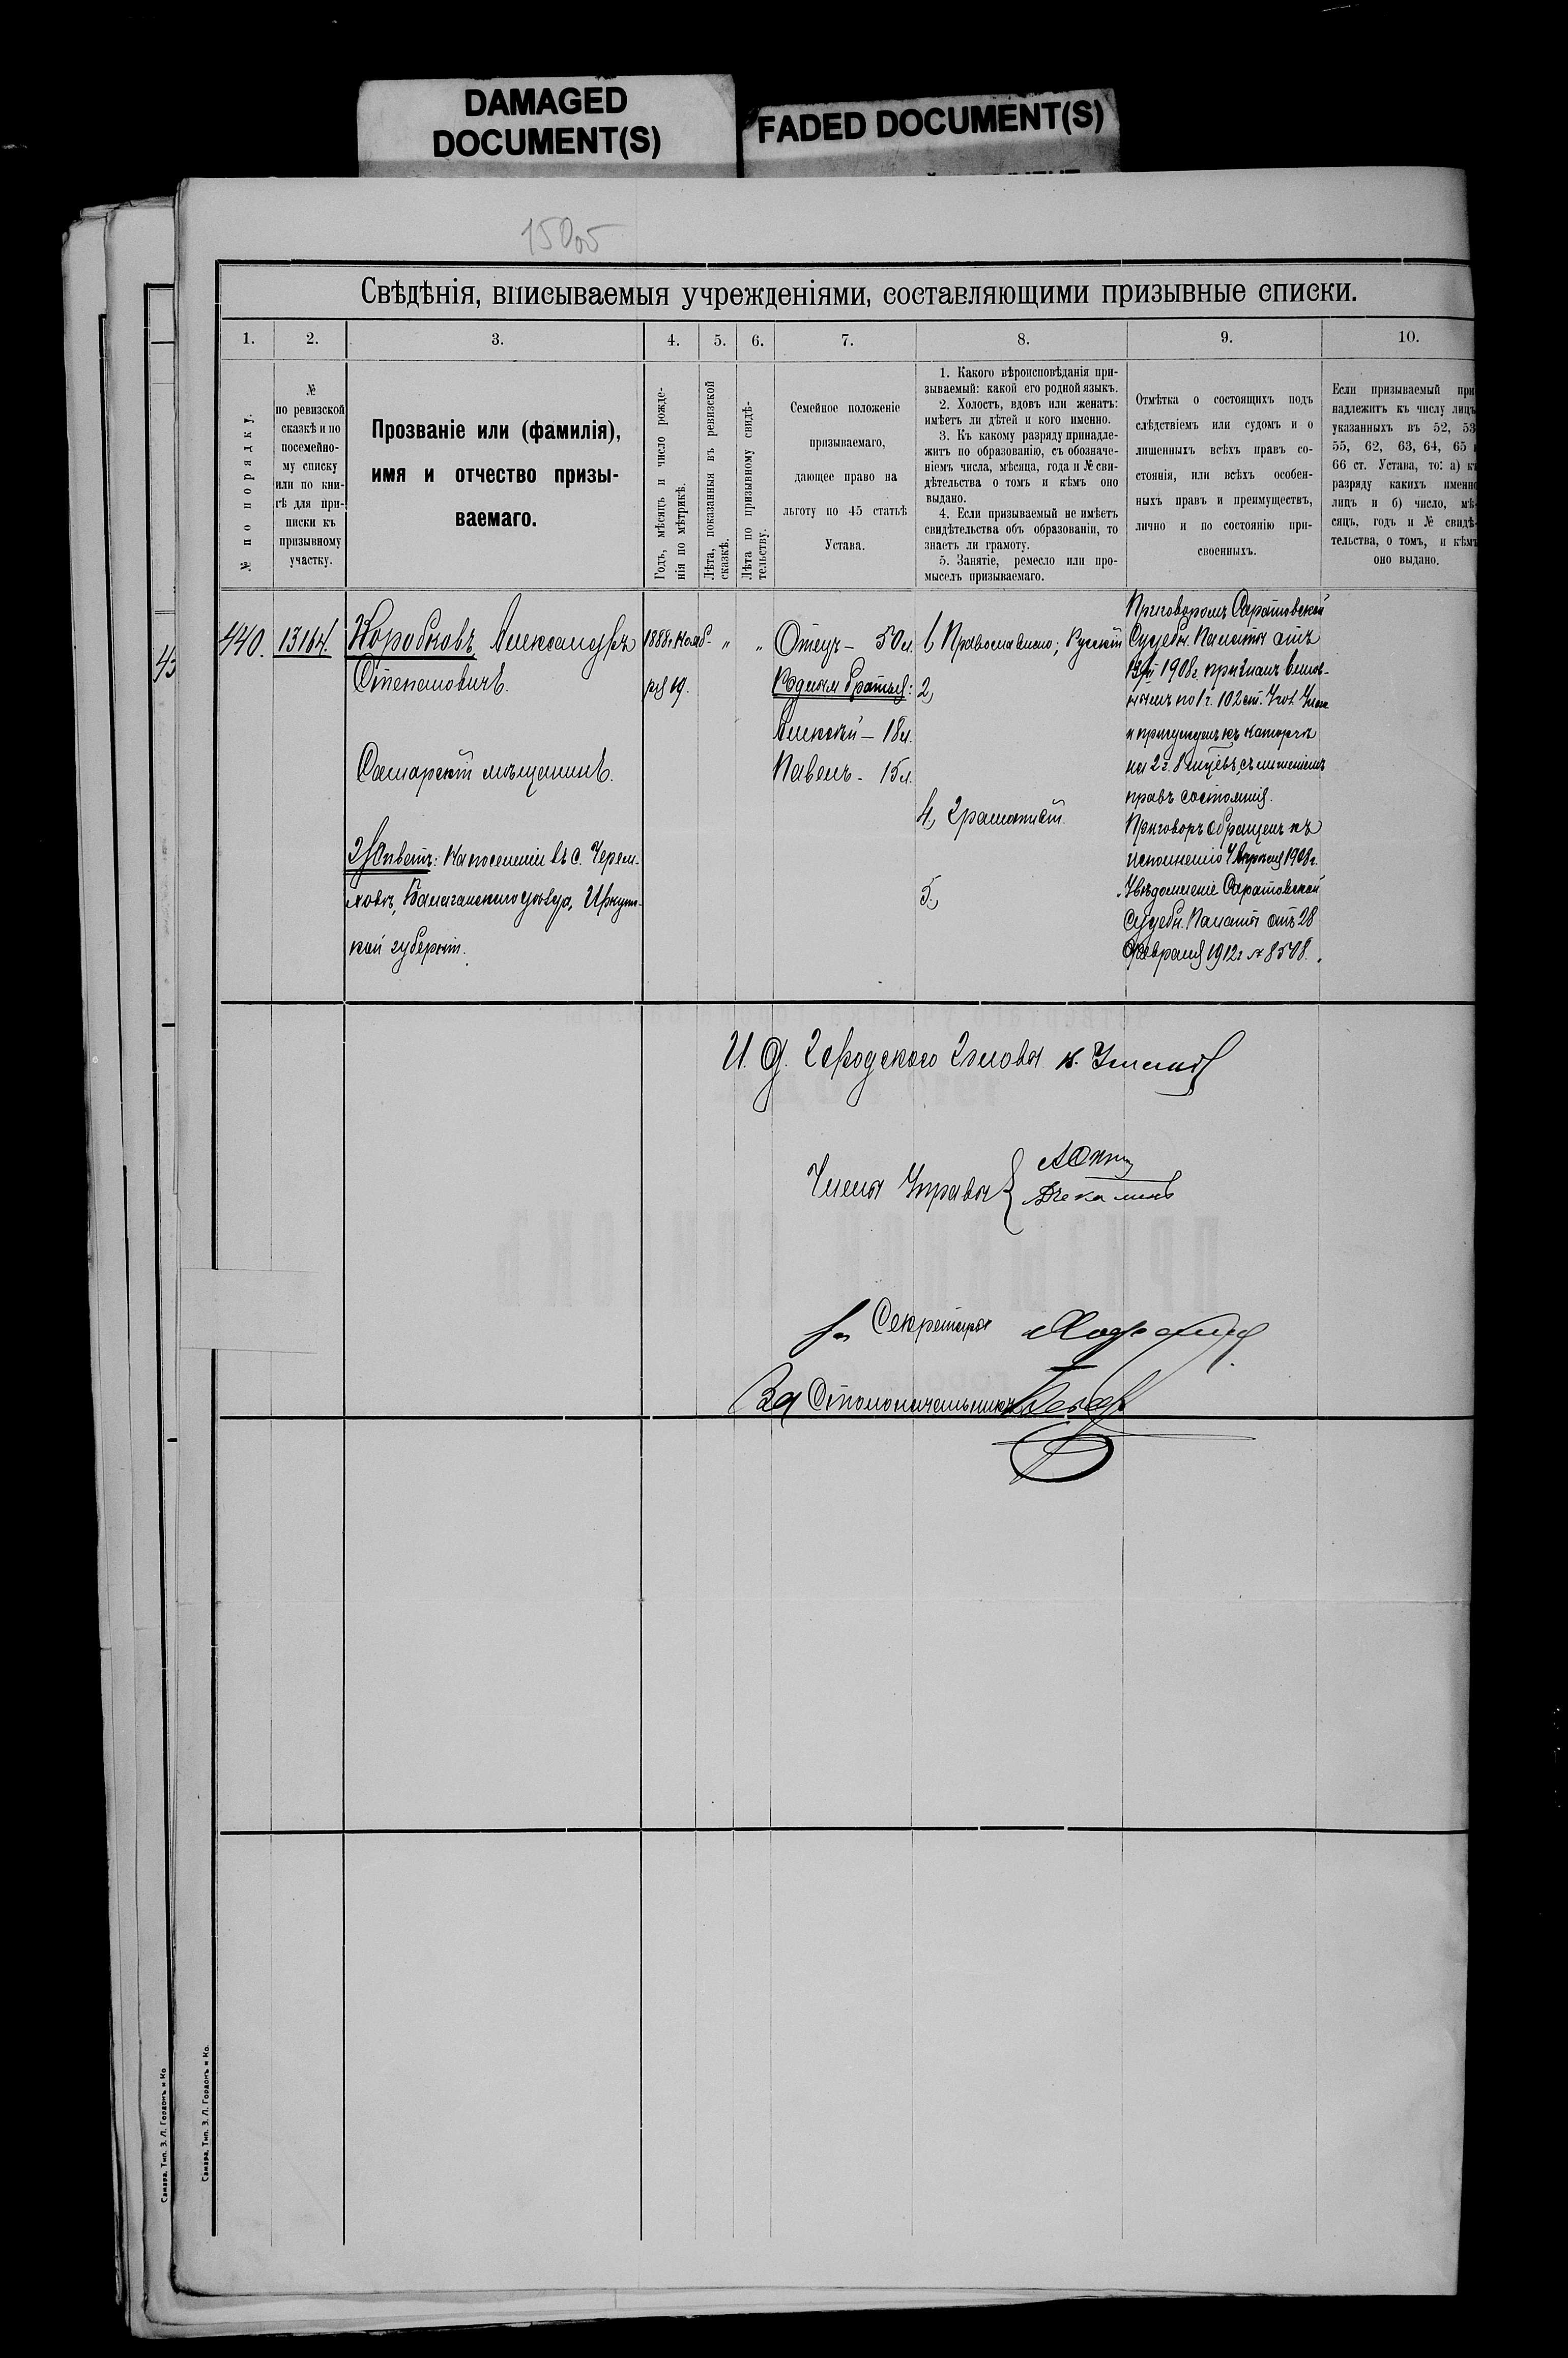 DAMAGED
DOCUMENT(S)
FADED DOCUMENT(S)
Свѣдѣнія, вписываемыя учрежденіями, составляющими призывные списки.
1.
2.
3.
4.
5.
6.
7.
8.
9.
10.
№ по порядку.
№
по ревизской
сказкѣ и по
посемейно-
му списку
или по кни-
гѣ для при-
писки къ
призывному
участку.
Прозваніе или (фамилія),
имя и отчество призы-
ваемаго.
Годъ, мѣсяцъ и число рожде-
нія по мѣтрикѣ.
Лѣта, показанныя въ ревизской
сказкѣ.
Лѣта по призывному свидѣ-
тельству.
Семейное положеніе
призываемаго,
дающее право на
льготу по 45 статьѣ
Устава.
1. Какого вѣроисповѣданія при-
зываемый: какой его родной языкъ.
2. Холостъ, вдовъ или женатъ:
имѣетъ ли дѣтей и кого именно.
3. Къ какому разряду принадле-
житъ по образованію, съ обозначе-
ніемъ числа, мѣсяца, года и № сви-
дѣтельства о томъ и кѣмъ оно
выдано.
4. Если призываемый не имѣетъ
свидѣтельства объ образованіи, то
знаетъ ли грамоту.
5. Занятіе, ремесло или про-
мыселъ призываемаго.
Отмѣтка о состоящихъ подъ
слѣдствіемъ или судомъ и о
лишенныхъ всѣхъ правъ со-
стоянія, или всѣхъ особен-
ныхъ правъ и преимуществъ,
лично и по состоянію при-
своенныхъ.
Если призываемый при
надлежитъ къ числу лицъ
указанныхъ въ 52, 53
55, 62, 63, 64, 65
66 ст. Устава, то: а) къ
разряду какихъ именно
лицъ и б) число, мѣ-
сяцъ, годъ и № свидѣ-
тельства, о томъ, и кѣмъ
оно выдано.
440.
13164.
Коробковъ, Александръ
Степановичъ.
Самарскій мѣщанинъ.
Живетъ: На поселеніи въ с. Черем-
ховѣ, Балаганскаго уѣзда, Иркут-
кой губерніи.
1888г. Нояб-
ря 19.
"
"
Отецъ - 50 л.
Родные братья:
Алексѣй - 18 л.
Павелъ - 15 л.
1, Православнаго; Русскій
2,
4, Грамотный
5.,
Приговоромъ Саратовской
Судебн. Палаты отъ
1908г. признанъ винов-
нымъ по 1 ч. 102 ст. Угол. Улож
и присужденъ къ каторгѣ
на 2 г. 8 мцевъ, съ лишеніемъ
правъ состоянія.
Приговоръ обращенъ къ
исполненію 4 Апрѣля 1908 г.
Увѣдомленіе Саратовской
Судебн. Палаты отъ 28
Февраля 1912 г № 8508.
И. д. Городского Головы
Члены Управы
Чекалинъ
За Секретаря
За Столоначальника
Самара, Тип. З. Л. Гордонъ и Ко
Самара, Тип. З. Л. Гордонъ и Ко.